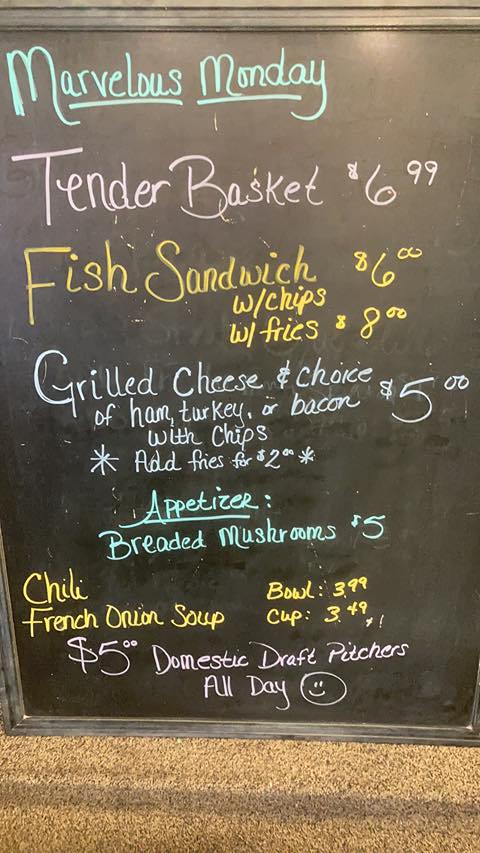 Marvelous Monday
Tender Basket $6.99
Fish Sandwich $6.00
w/chips
w/ fries $8.00
Grilled Cheese & choice $5.00
of ham, turkey, or bacon
with Chips
* Add fries for $2.00 *
Appetizer:
Breaded Mushrooms $5
Chili Bowl: 3.99
French Onion Soup Cup: 3.49
$5.00 Domestic Draft Pitchers
All Day